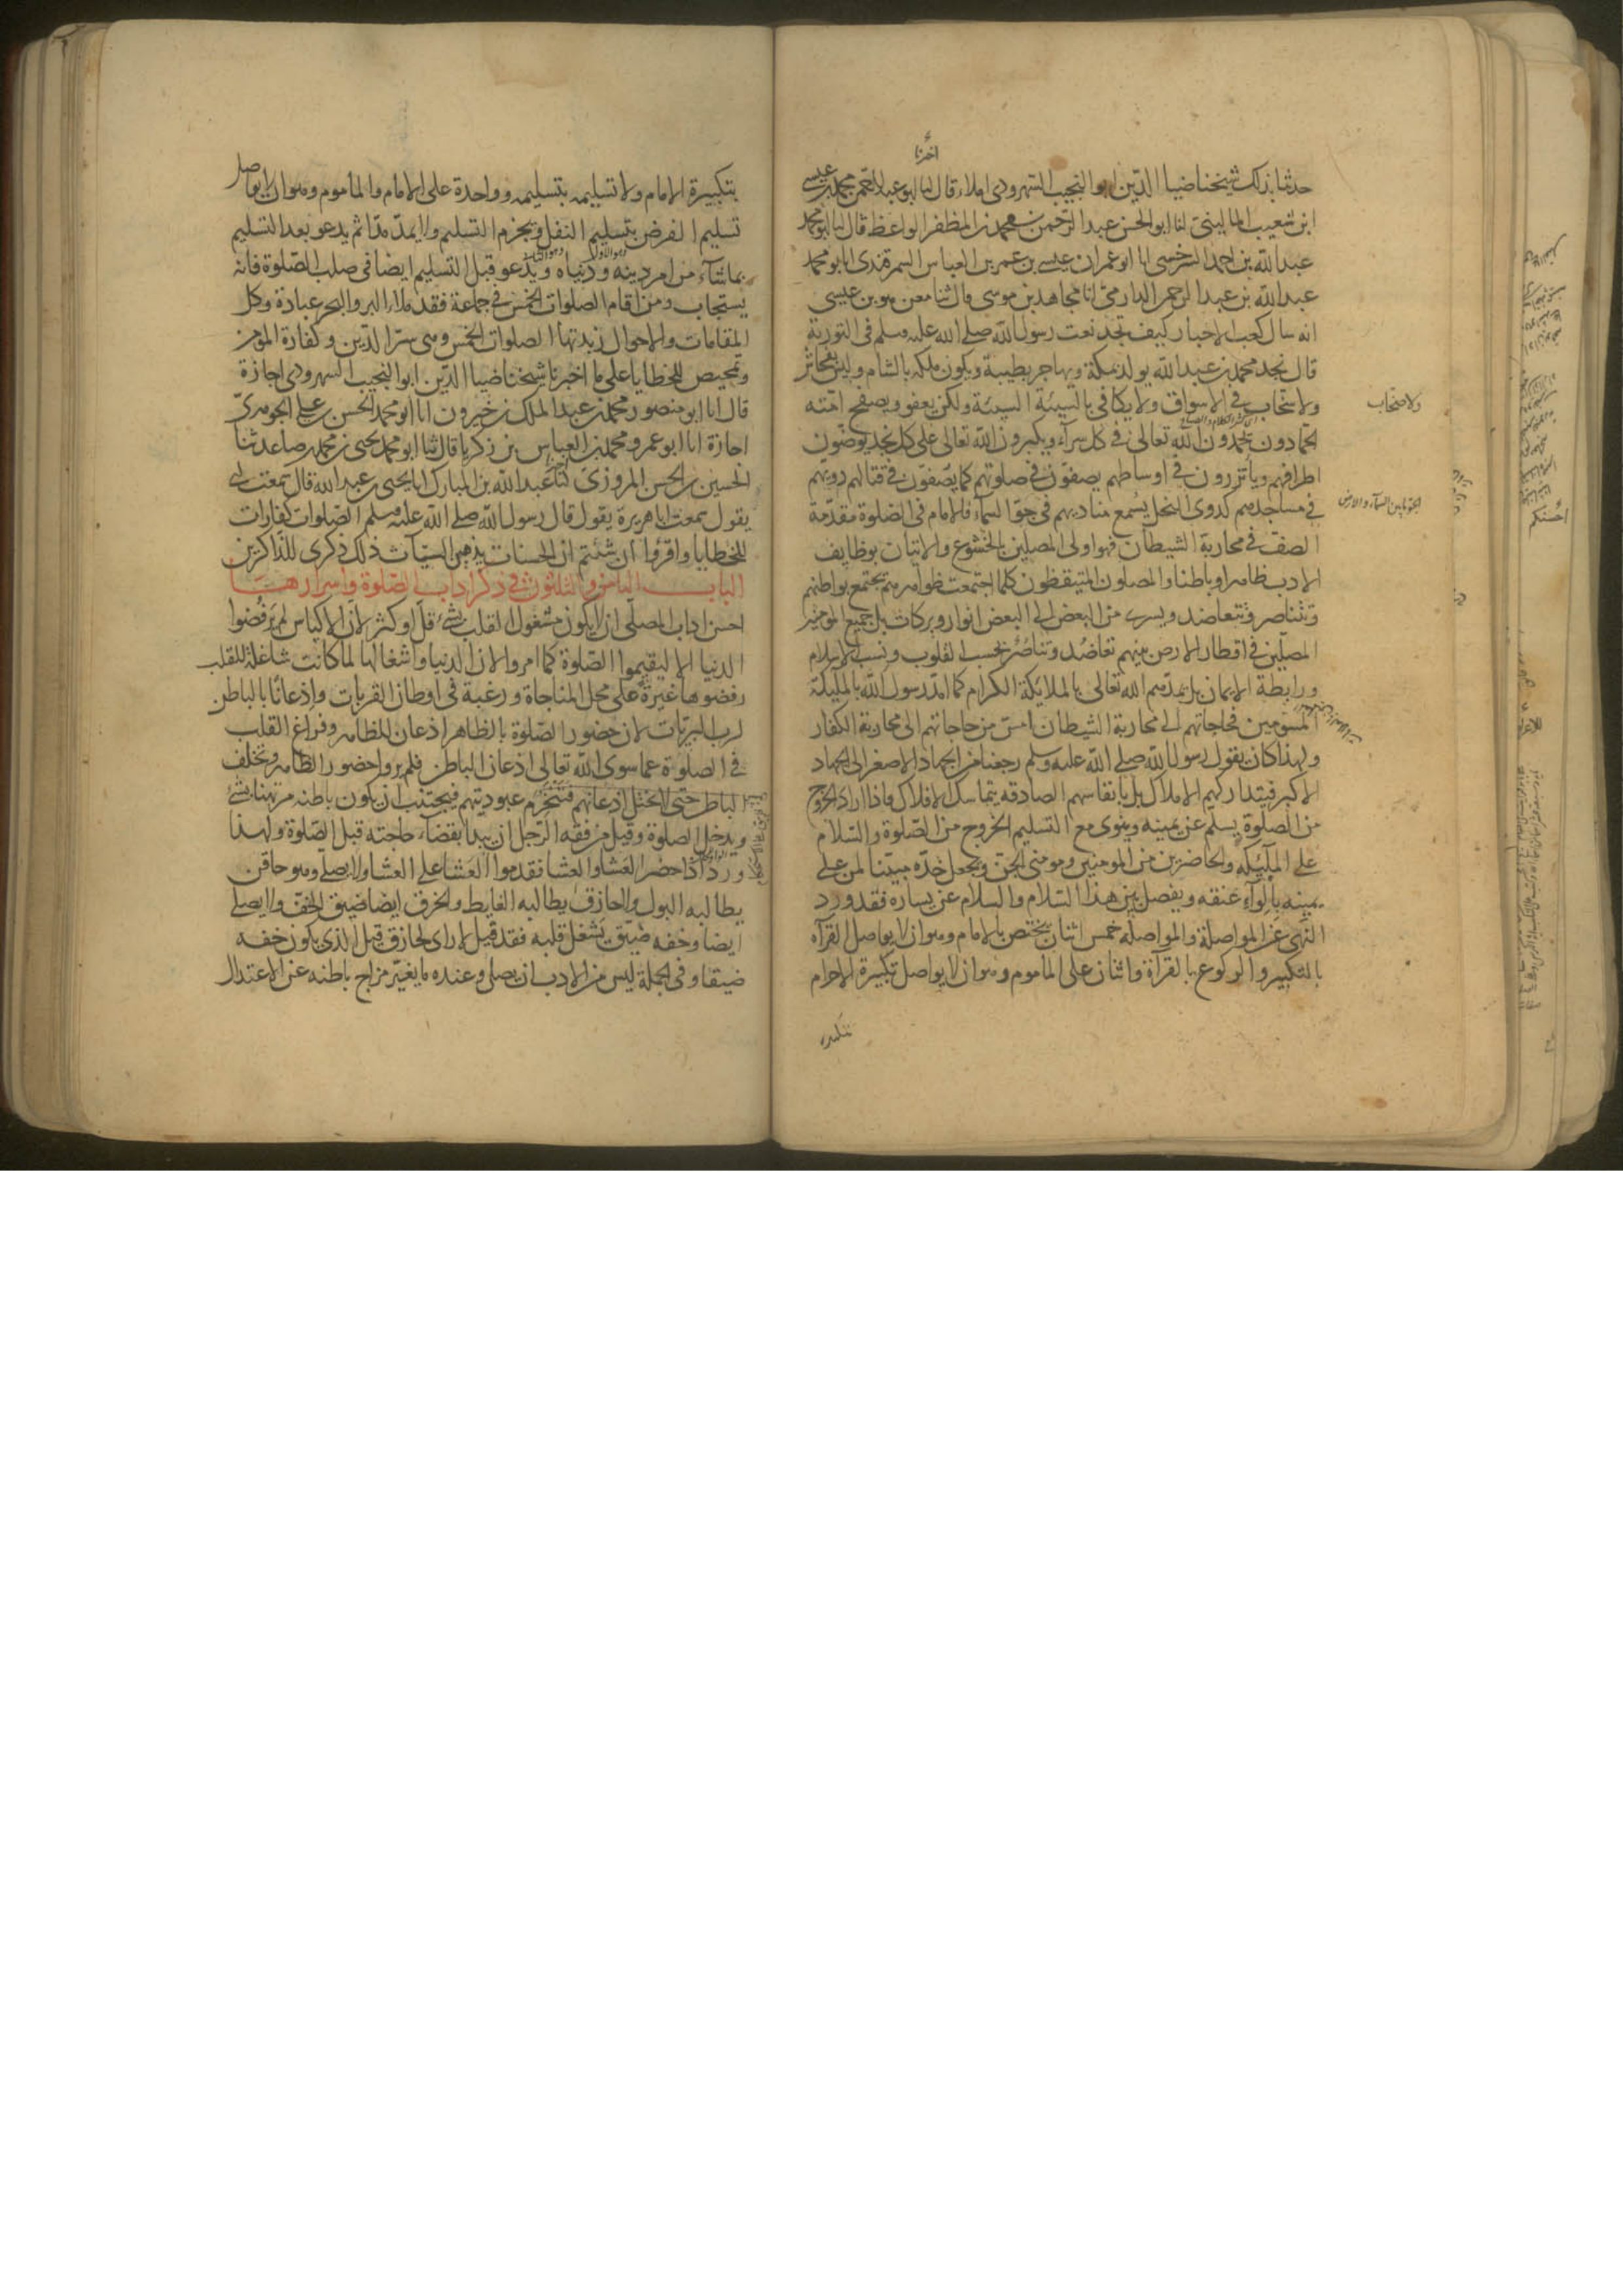 حدثنا بذلك شيخنا ضيا الدين ابو النجيب السهروردى املاء قال انا ابو عبد الرحمن محمد بن عيسى
ابن شعيب المالينى انا ابو الحسن عبد الرحمن بن محمد بن المظفر الواعظ قال انا ابو محمد
عبد الله بن احمد السرخسى انا ابو عمران عيسى بن عمر بن العباس السمرقندى انا ابو محمد
عبد الله بن عبد الرحمن الدارمى انا مجاهد بن موسى قال ثنا معن هو بن عيسى
انه سال كعب الاحبار كيف تجد نعت رسول الله صلى الله عليه وسلم فى التورية
قال نجد محمد بن عبد الله يولد بمكة ويهاجر بطيبة ويكون ملكه بالشام وليس بفحاش
ولا سخاب فى الاسواق ولا يكافى بالسيئة السيئة ولكن يعفو ويصفح امته
الحمادون يحمدون الله تعالى فى كل سراء ويكبرون الله تعالى على كل نجد يوضون
اطرافهم وياتزرون فى اوساطهم يصفون فى صلوتهم كما يصفون فى قتالهم دويهم
فى مساجدهم كدوى النحل يسمع مناديهم فى جو السماء فالامام فى الصلوة مقدمة
الصف فى محاربة الشيطان فهو اولى المصلين بالخشوع والاتيان بوظايف
الادب ظاهرا وباطنا والمصلون المتيقظون كلما اجتمعت ظواهرهم تجتمع بواطنهم
وتتناصر وتتعاضد ويسرى من البعض الى البعض انوار وبركات بل جميع المومنين
المصلين فى اقطار الارض بينهم تعاضد وتناصر بحسب القلوب ونسب الاسلام
ورابطة الايمان بل يمدهم الله تعالى بالملايكة الكرام كما امد رسول الله بالمليكة
المسومين فحاجاتهم الى محاربة الشيطان امس من حاجاتهم الى محاربة الكفار
ولهذا كان يقول رسول الله صلى الله عليه وسلم رجعنا من الجهاد الاصغر الى الجهاد
الاكبر فيتداركهم الاملاك بل بانفاسهم الصادقه يتماسك الافلاك فاذا اراد الخروج
من الصلوة يسلم عن يمينه وينوى مع التسليم الخروج من الصلوة والسلام
على المليكه والحاضرين من المومنين ومومنى الجن ويجعل خده مبينا لمن على
يمينه بالواء عنقه ويفصل بين هذا السلام والسلام عن يساره فقد ورد
النهى عن المواصلة والمواصله خمس اثنان يختص بالامام وهو ان لا يواصل القرآه
بالتكبير والركوع بالقرآة واثنان على الماموم وهو ان لا يواصل تكبيرة الاحرام
ولا صخاب
الجو ما بين السماء والارض
بتكبيرة الامام ولا تسليمه بتسليمه وواحدة على الامام والماموم وهو ان لا يواصل
تسليم الفرض بتسليم النفل ويجزم التسليم ولا يمد مدا ثم يدعو بعد التسليم
بما شاء من امر دينه ودنياه ويدعو قبل التسليم ايضا فى صلب الصلوة فانه
يستجاب ومن اقام الصلوات الخمس فى جماعة فقد ملاء البر والبحر عبادة وكل
المقامات والاحوال زبدتها الصلوات الخمس وهى سر الدين وكفارة المومن
وتمحيص للخطايا على ما اخبرنا شيخنا ضيا الدين ابو النجيب السهروردى اجازة
قال انا ابو منصور محمد بن عبد الملك بن خيرون انا ابو محمد الحسن بن على الجوهرى
اجازة انا ابو عمرو محمد بن العباس بن زكريا قال ثنا ابو محمد يحيى بن محمد بن صاعد ثنا
الحسين بن الحسن المروزى انا عبد الله بن المبارك انا يحيى بن عبد الله قال سمعت ابى
يقول سمعت ابا هريرة يقول قال رسول الله صلى الله عليه وسلم الصلوات كفارات
للخطايا واقرؤا ان شئتم ان الحسنات يذهبن السيآت ذلك ذكرى للذاكرين
الباب الثامن والثلثون فى ذكر اداب الصلوة واسرارها
احسن اداب المصلى ان لا يكون مشغول القلب بشئ قل او كثر لان الاكياس لم يرفضوا
الدنيا الا ليقيموا الصلوة كما امروا لان الدنيا واشغالها لما كانت شاغلة للقلب
رفضوها غيرة على محل المناجاة ورغبة فى اوطان القربات واذعانا بالباطن
لرب البريات لان حضور الصلوة بالظاهر اذعان الظاهر وفراغ القلب
فى الصلوة عما سوى الله تعالى اذعان الباطن فلم يروا حضور الظاهر وتخلف
الباطن حتى لا يختل اذعانهم فتنخرم عبوديتهم فيجتنب ان يكون باطنه مرتهنا بشئ
ويدخل الصلوة وقيل من فقه الرجل ان يبدأ بقضاء حاجته قبل الصلوة ولهذا
ورد اذا حضر العشا والعشا فقدموا العشا على العشا ولا يصلى وهو حاقن
يطالبه البول ولا حازق يطالبه الغايط والحزق ايضا ضيق الخف ولا يصلى
ايضا وخفه ضيق يشغل قلبه فقد قيل لا راى لحازق قيل الذى يكون خفه
ضيقا وفى الجملة ليس من الادب ان يصلى وعنده ما يغير مزاج باطنه عن الاعتدال